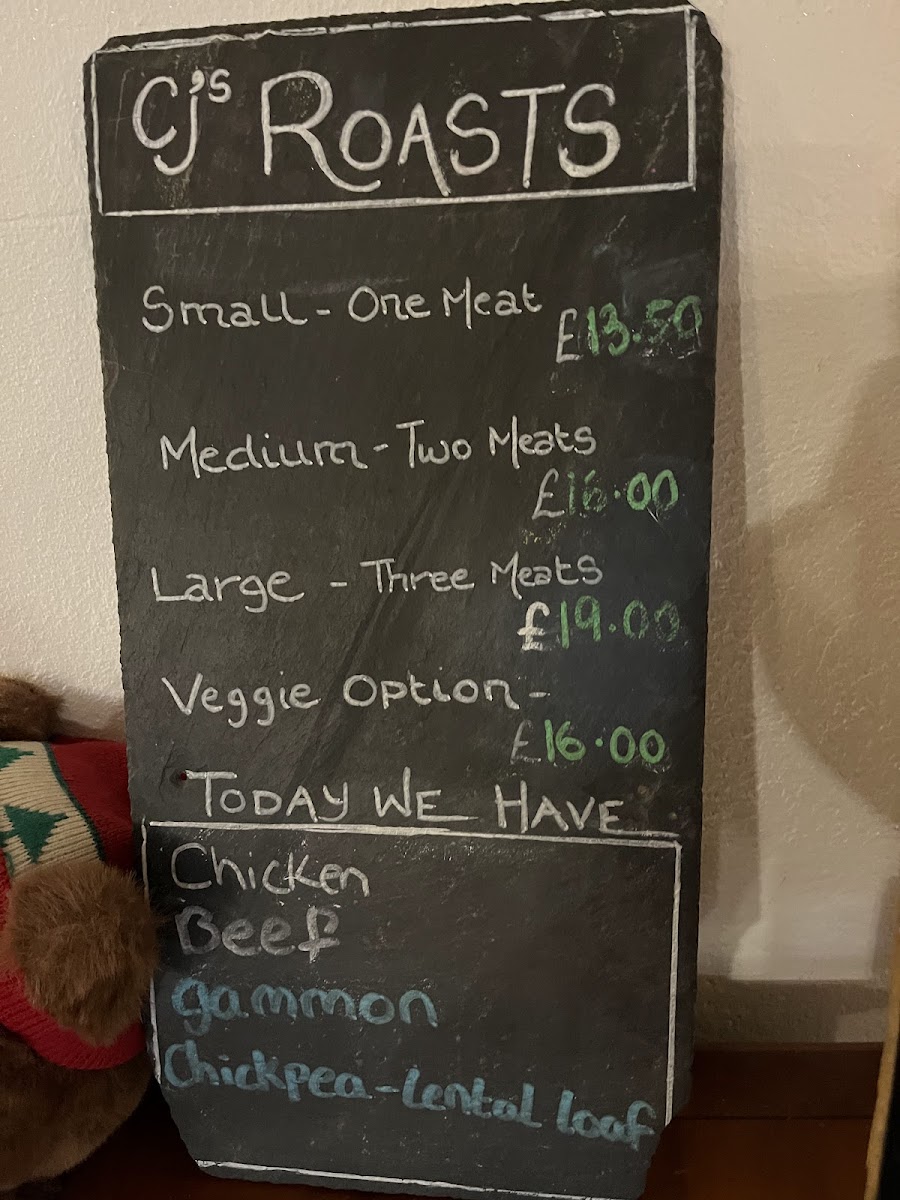 CJ's ROASTS
Small - One Meat
£13.50
Medium - Two Meats
£16.00
Large - Three Meats
£19.00
Veggie Option -
£16.00
TODAY WE HAVE
Chicken
Beef
gammon
Chickpea-Lental loaf